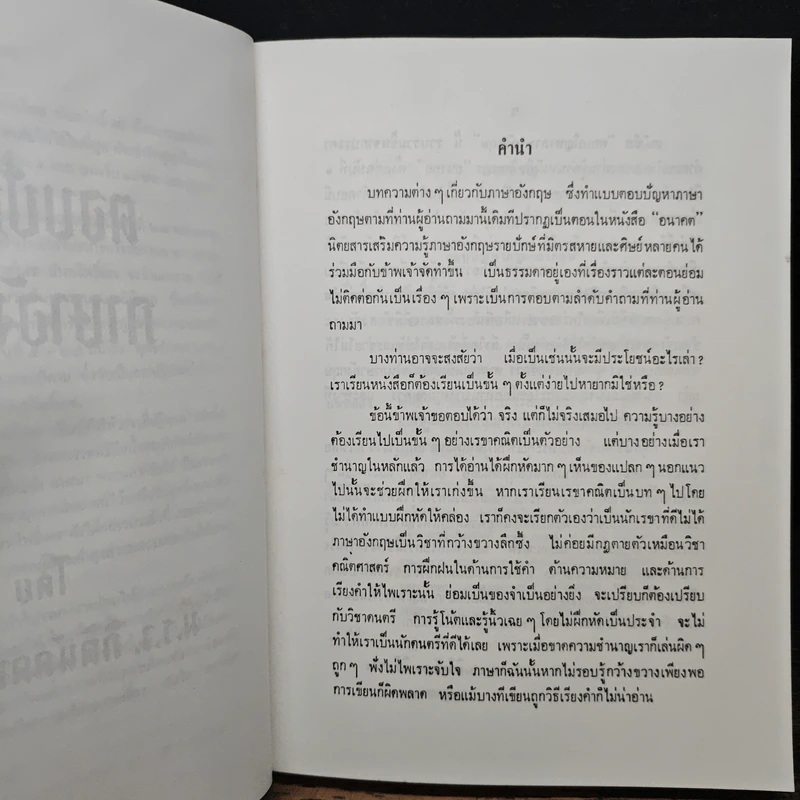 คำนำ
บทความต่าง ๆ เกี่ยวกับภาษาอังกฤษ ซึ่งทำแบบตอบปัญหาภาษา
อังกฤษตามที่ท่านผู้อ่านถามมานี้เดิมทีปรากฏเป็นตอนในหนังสือ “อนาคต”
นิตยสารเสริมความรู้ภาษาอังกฤษรายปักษ์ที่มิตรสหายและศิษย์หลายคนได้
ร่วมมือกับข้าพเจ้าจัดทำขึ้น เป็นธรรมดาอยู่เองที่เรื่องราวแต่ละตอนย่อม
ไม่ติดต่อกันเป็นเรื่อง ๆ เพราะเป็นการตอบตามลำดับคำถามที่ท่านผู้อ่าน
ถามมา
บางท่านอาจจะสงสัยว่า เมื่อเป็นเช่นนั้นจะมีประโยชน์อะไรเล่า?
เราเรียนหนังสือก็ต้องเรียนเป็นขั้น ๆ ตั้งแต่ง่ายไปหายากมิใช่หรือ?
ข้อนี้ข้าพเจ้าขอตอบได้ว่า จริง แต่ก็ไม่จริงเสมอไป ความรู้บางอย่าง
ต้องเรียนไปเป็นขั้น ๆ อย่างเรขาคณิตเป็นตัวอย่าง แต่บางอย่างเมื่อเรา
ชำนาญในหลักแล้ว การได้อ่านได้ฝึกหัดมาก ๆ เห็นของแปลก ๆ นอกแนว
ไปนั้นจะช่วยฝึกให้เราเก่งขึ้น หากเราเรียนเรขาคณิตเป็นบท ๆ ไปโดย
ไม่ได้ทำแบบฝึกหัดให้คล่อง เราก็คงจะเรียกตัวเองว่าเป็นนักเรขาที่ดีไม่ได้
ภาษาอังกฤษเป็นวิชาที่กว้างขวางลึกซึ้ง ไม่ค่อยมีกฎตายตัวเหมือนวิชา
คณิตศาสตร์ การฝึกฝนในด้านการใช้คำ ด้านความหมาย และด้านการ
เรียงคำให้ไพเราะนั้น ย่อมเป็นของจำเป็นอย่างยิ่ง จะเปรียบก็ต้องเปรียบ
กับวิชาดนตรี การรู้โน้ตและรู้นิ้วเฉย ๆ โดยไม่ฝึกหัดเป็นประจำ จะไม่
ทำให้เราเป็นนักดนตรีที่ดีได้เลย เพราะเมื่อขาดความชำนาญเราก็เล่นผิด ๆ
ถูก ๆ ฟังไม่ไพเราะจับใจ ภาษาก็ฉันนั้นหากไม่รอบรู้กว้างขวางเพียงพอ
การเขียนก็ผิดพลาด หรือแม้บางทีเขียนถูกวิธีเรียงคำก็ไม่น่าอ่าน